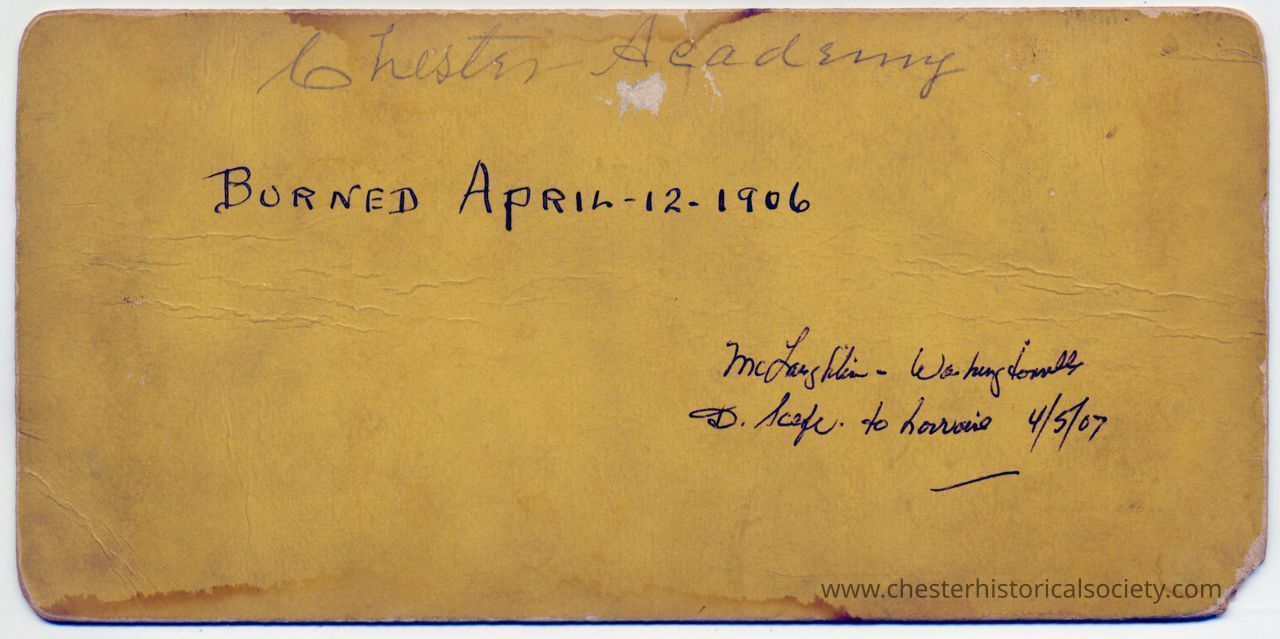 Chester Academy
BURNED APRIL-12-1906
McLaughlin - Washingtonville
D. Scafe. to Lorraine 4/5/07
www.chesterhistoricalsociety.com